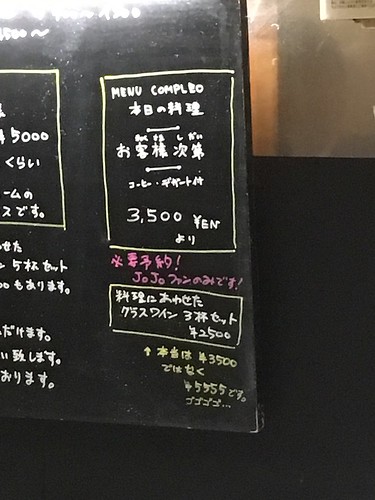 500〜
¥5000
くらい
ームの
スです。
わせた
ン5杯セット
もあります。
だけます。
い致します。
おります。
MENU COMPLEO
本日の料理
お客様次第
コーヒー・デザート付
3,500 ¥EN
より
※要予約!
JoJoファンのみです!
料理にあわせた
グラスワイン 3杯セット
¥2500
↑ 本当は ¥3500
ではなく
¥5555です。
ゴゴゴゴ...